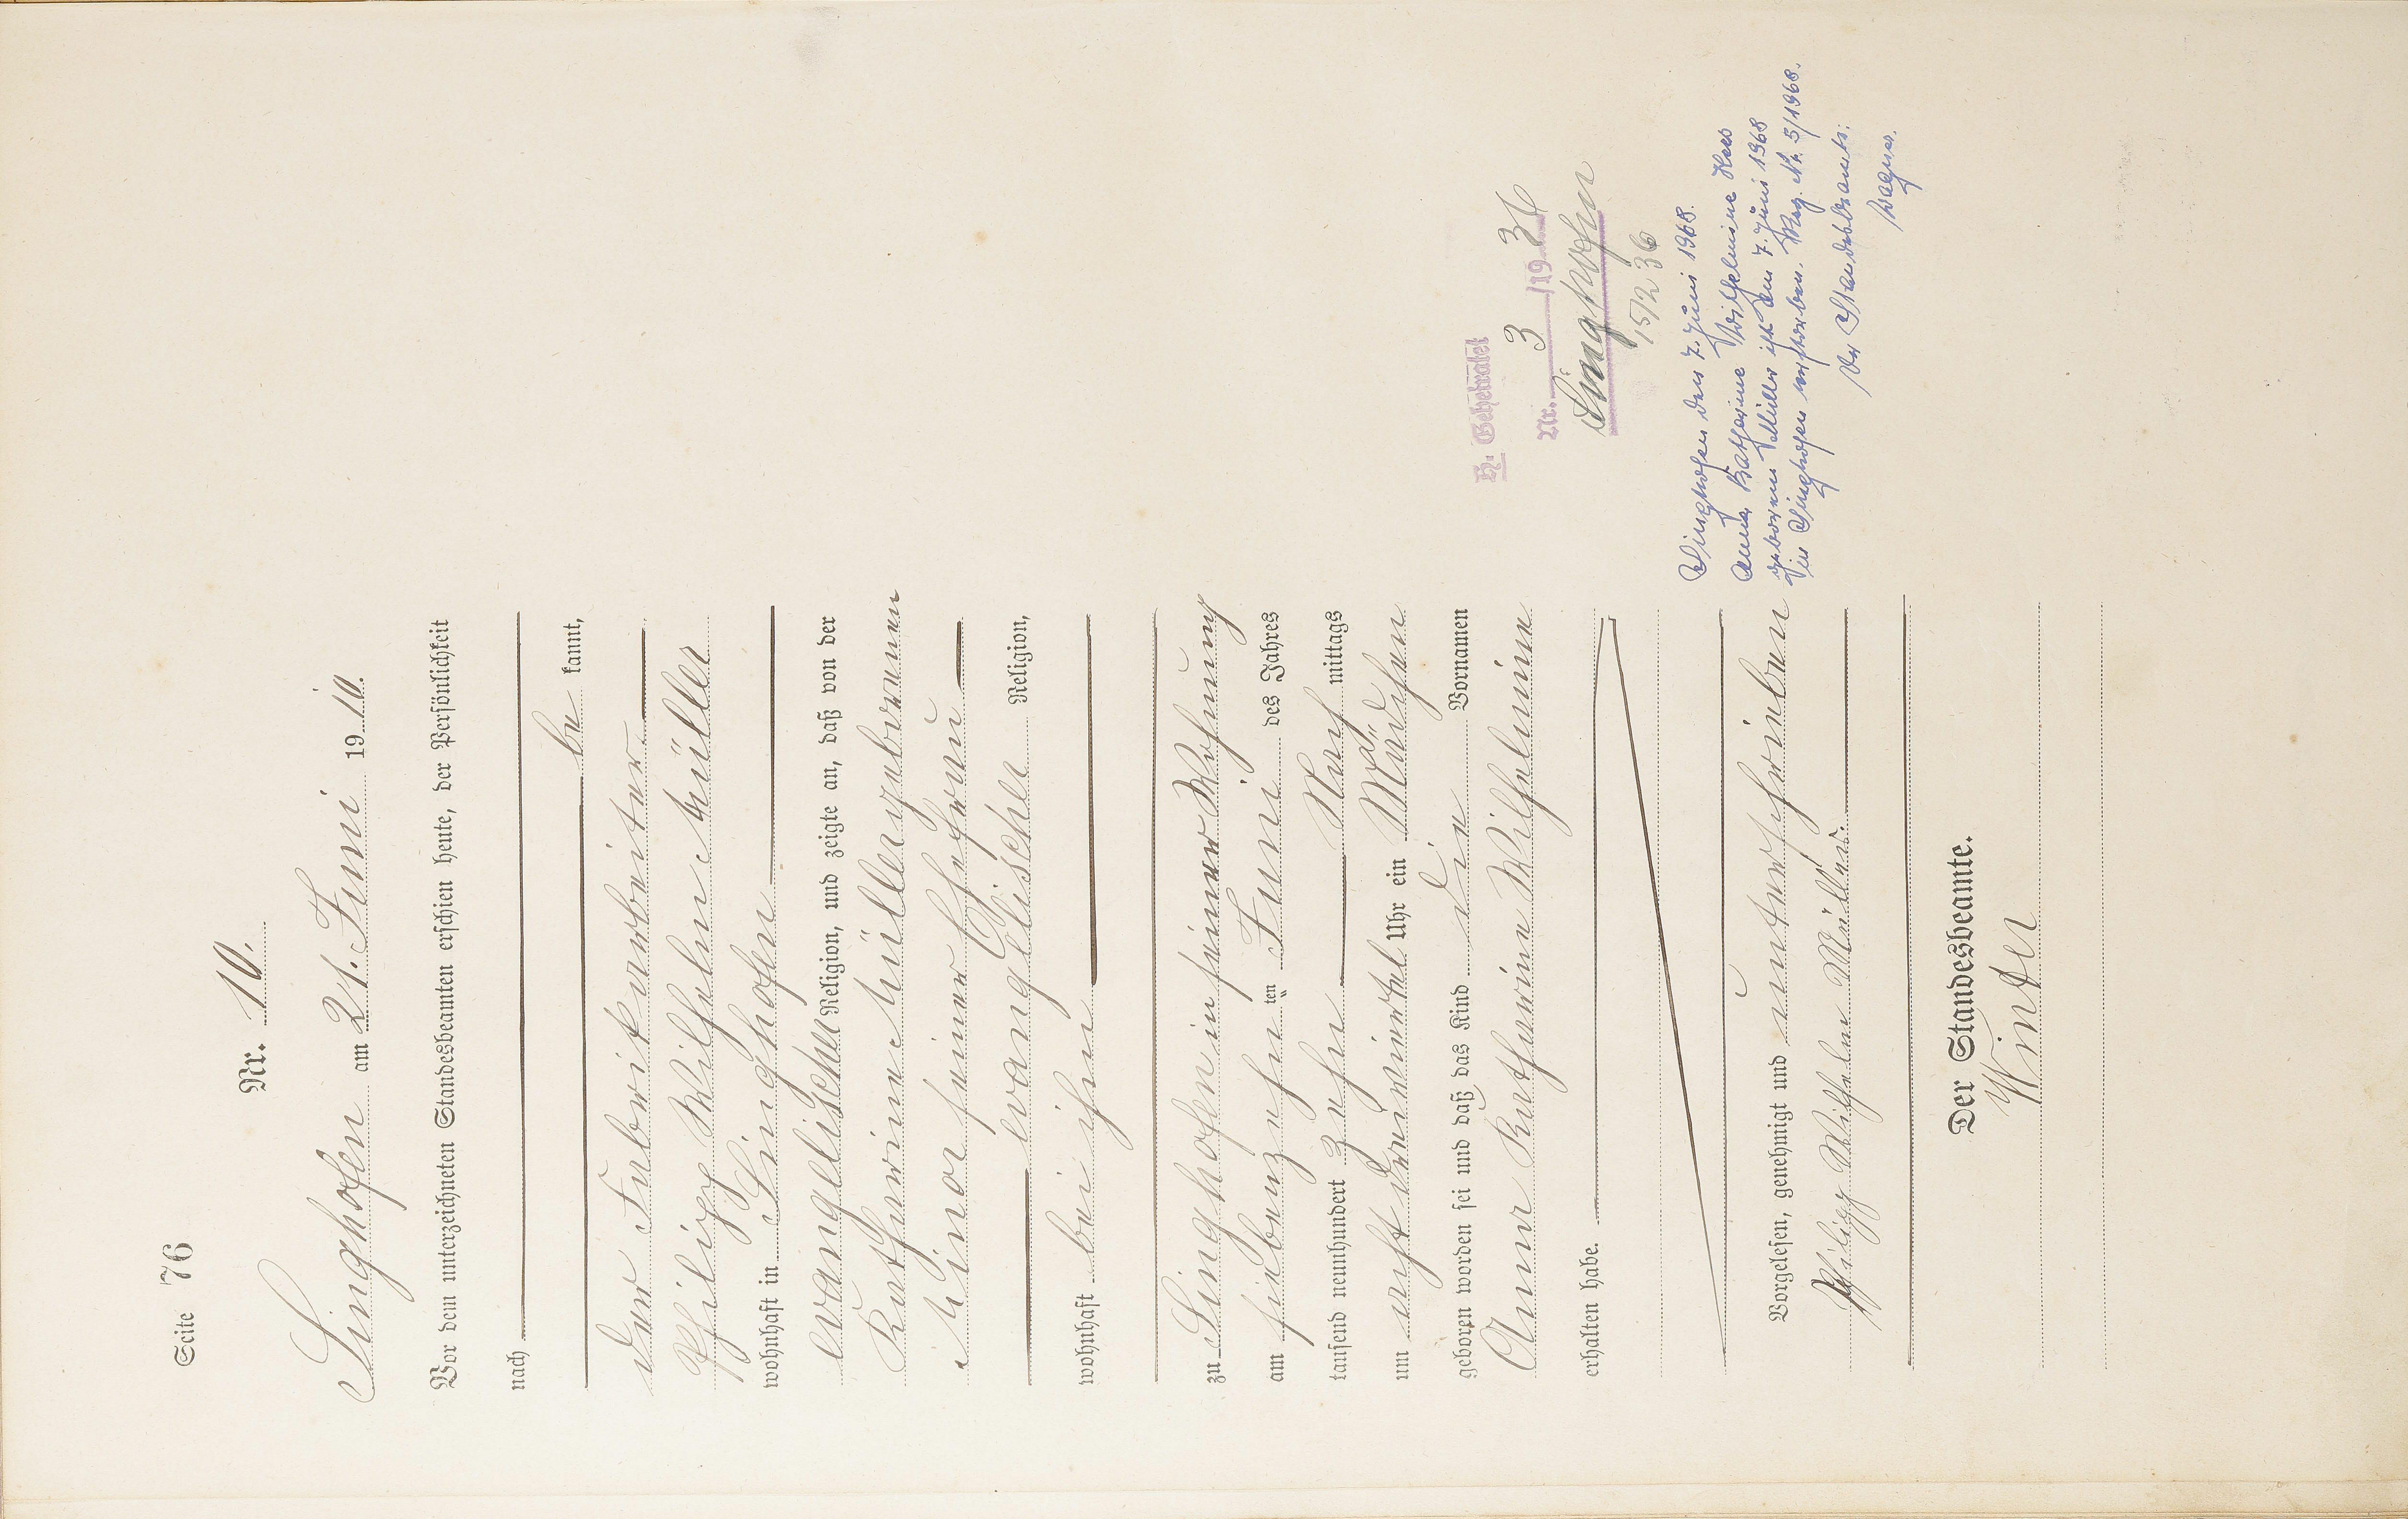 Seite 76
Nr. 10.
Singhofen am 21. Juni 1910.
Vor dem unterzeichneten Standesbeamten erschien heute, der Persönlichkeit
nach
be kannt,
der Fabrikarbeiter
Philipp Wilhelm Müller
wohnhaft in Singhofen
evangelischer Religion, und zeigte an, daß von der
Katharine Müller geborenen
Minor seiner Ehefrau
evanglischer Religion,
wohnhaft bei ihm
zu Singhofen in seiner Wohnung
am siebenzehn ten Juni des Jahres
tausend neunhundert zehn Nach mittags
um acht dreiviertel Uhr ein Mädchen
geboren worden sei und daß das Kind die Vornamen
Anna Katharina Wilhelmine
erhalten habe.
Vorgelesen, genehmigt und unterschrieben
Philipp Wilhelm Müller.
Der Standesbeamte.
Winter
H. Geheiratet
Nr. 3/1936
Singhofen
15/2 36
Singhofen den 7. Juni 1968.
Anna Katharine Wilhelmine
geborene Müller ist am 7. Juni 1968
in Singhofen verstorben. Reg. Nr. 5/1968.
Der Standesbeamte:
Wagner.